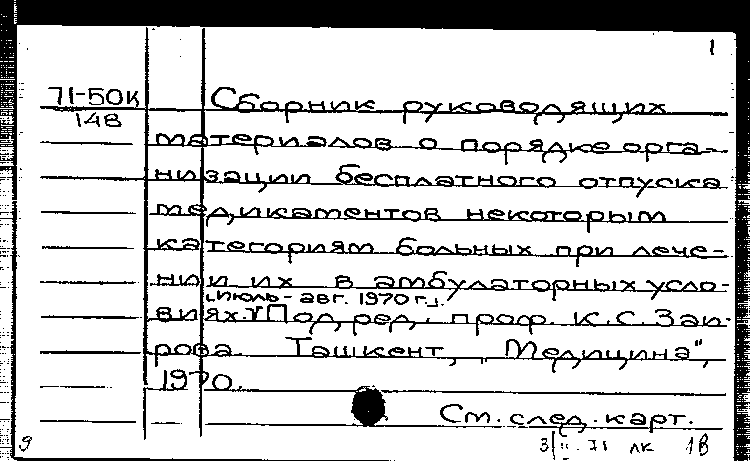 1
71-50К Сборник руководящих
148
материалов о порядке орга-
низации бесплатного отпуска
медикаментов некоторым
категориям больных при лече-
нии их в амбулаторных усло-
[Июль-авг. 1970 г.].
виях. Под ред. проф. К.С. Заи-
рова. Ташкент, "Медицина",
1970.
См. след. карт.
9 3/II.71 лк 1В